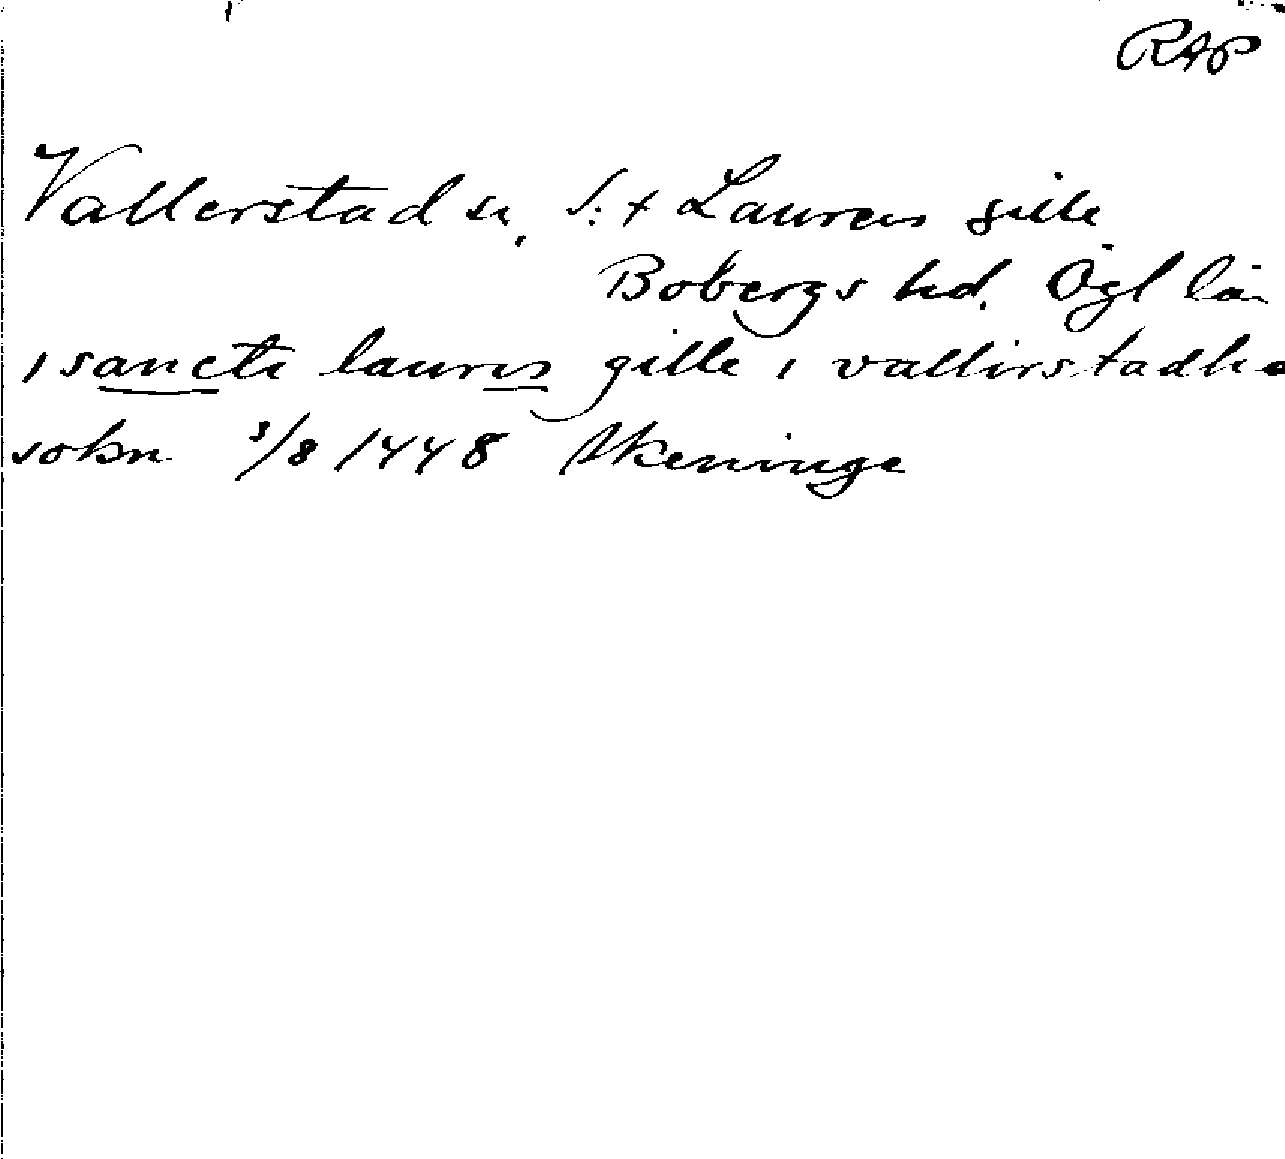 RAP
Vallerstad sn, S:t Laurens gille
Bobergs hd. Ögl län
i sancte laur​es gille i vallirstadha
sokn 3/8 1448 Skeninge